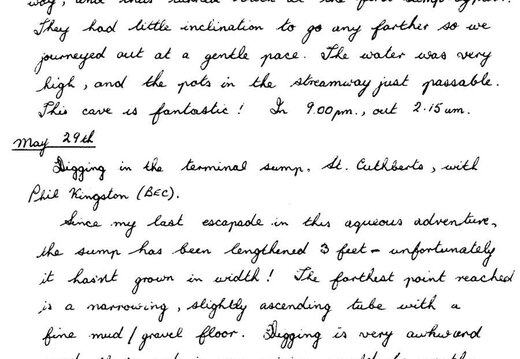 way, and then turned back at the first sump bypass.
They had little inclination to go any farther so we
journeyed out at a gentle pace. The water was very
high, and the pots in the streamway just passable.
This cave is fantastic! In 9.00pm., out 2.15am.
May 29th
Digging in the terminal sump, St. Cuthberts, with
Phil Kingston (BEC).
Since my last escapade in this aqueous adventure,
the sump has been lengthened 3 feet - unfortunately
it hasnt grown in width! The farthest point reached
is a narrowing, slightly ascending tube with a
fine mud/gravel floor. Digging is very awkward